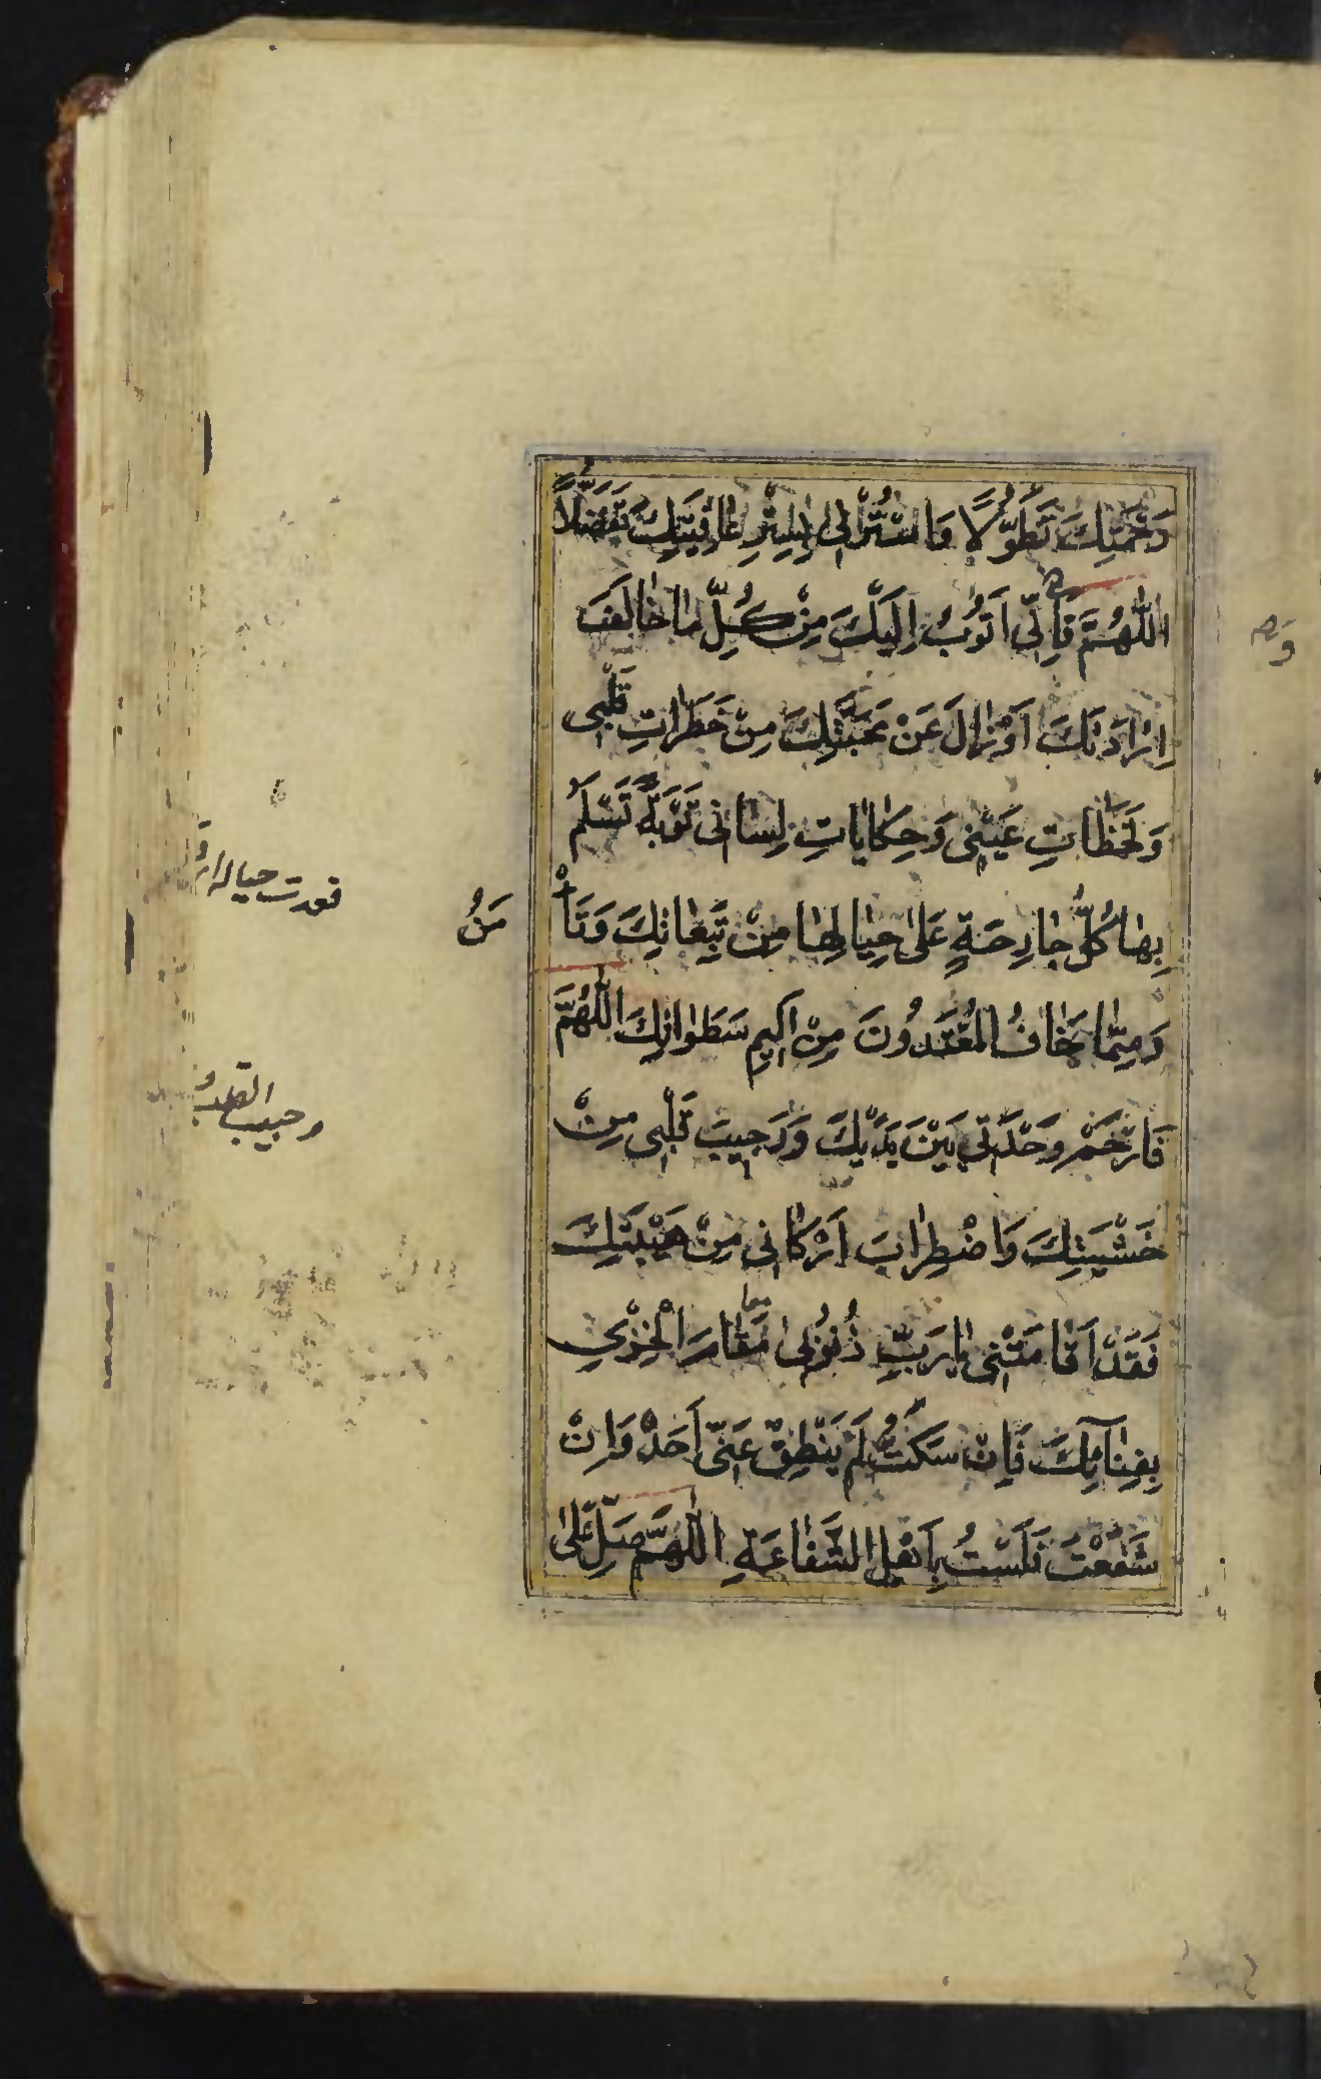 رَحْمَتِكَ تَطَوُّلًا وَاسْتُرْنِى بِسِتْرِ عَافِيَتِكَ تَفَضُّلًا
اَللّٰهُمَّ فَاِنِّى اَتُوبُ اِلَيْكَ مِنْ كُلِّ مَا خَالَفَ
اِرَادَتَكَ اَوْ زَالَ عَنْ مَحَبَّتِكَ مِنْ خَطَرَاتِ قَلْبِى
وَلَحَظَاتِ عَيْنِى وَحِكَايَاتِ لِسَانِى تَوْبَةً تَسْلَمُ
بِهَا كُلُّ جَارِحَةٍ عَلٰى حِيَالِهَا مِنْ تَبِعَاتِكَ وَتَأْ
مَنُ
وَمِمَّا يَخَافُ الْمُعْتَدُونَ مِنْ اَلِيمِ سَطَوَاتِكَ اَللّٰهُمَّ
فَارْحَمْ وَحْدَتِى بَيْنَ يَدَيْكَ وَوَجِيبَ قَلْبِى مِنْ
خَشْيَتِكَ وَاضْطِرَابَ اَرْكَانِى مِنْ هَيْبَتِكَ
فَقَدْ اَقَامَتْنِى يَا رَبِّ ذُنُوبِى مَقَامَ الْخِزْىِ
بِفِنَآئِكَ فَاِنْ سَكَتُّ لَمْ يَنْطِقْ عَنِّى اَحَدٌ وَاِنْ
شَفَعْتُ فَلَسْتُ بِاَهْلِ الشَّفَاعَةِ اَللّٰهُمَّ صَلِّ عَلٰى